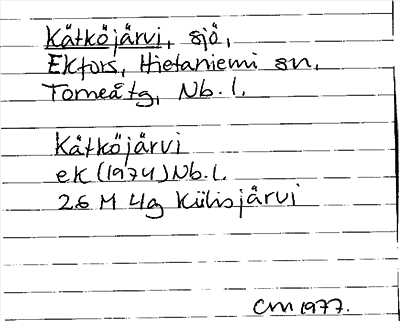 Kätköjärvi, sjö,
Ekfors, Hietaniemi sn,
Torneå tg, Nb. l.
Kätköjärvi
ek (1974) Nb. l.
26 M 4g Kiilisjärvi
CM 1977.